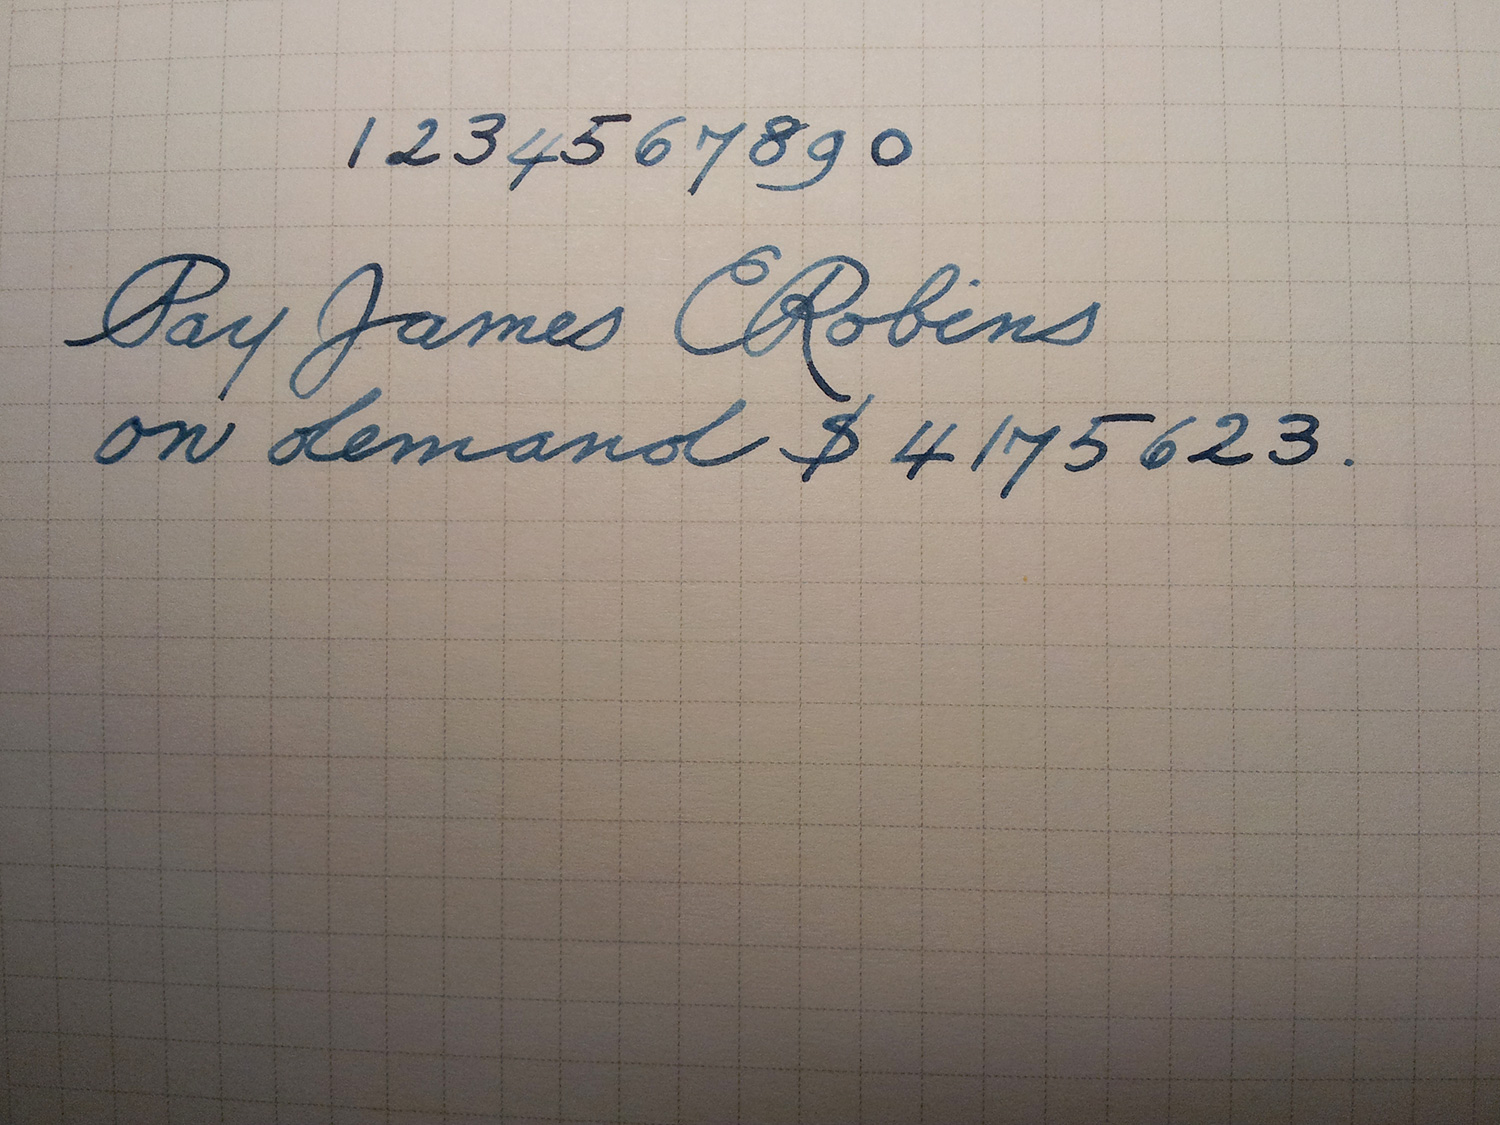 1234567890
Pay James E Robins
on demand $ 4175623.